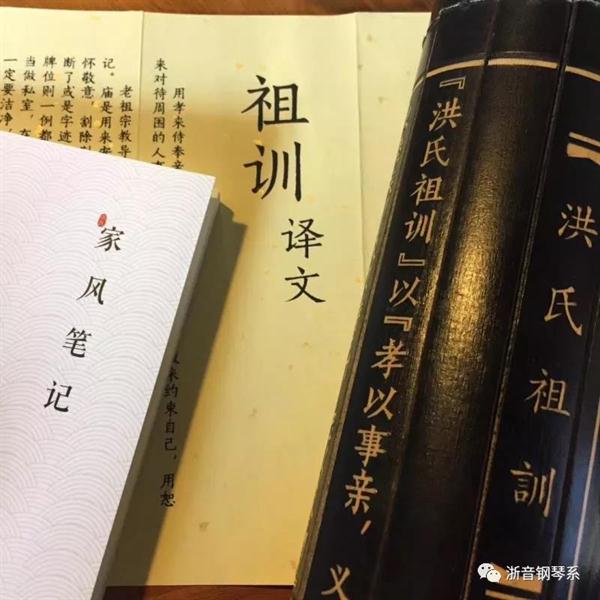 洪氏祖訓
『洪氏祖训』以『孝以事亲，义
祖训
译文
用孝来侍奉
来约束自己，用恕
来对待周围的人
老祖宗教导
记。庙是用来
怀敬意，割除
断了或是字迹
牌位则一例都
当做私室，在
一定要洁净
家风笔记
浙音钢琴系